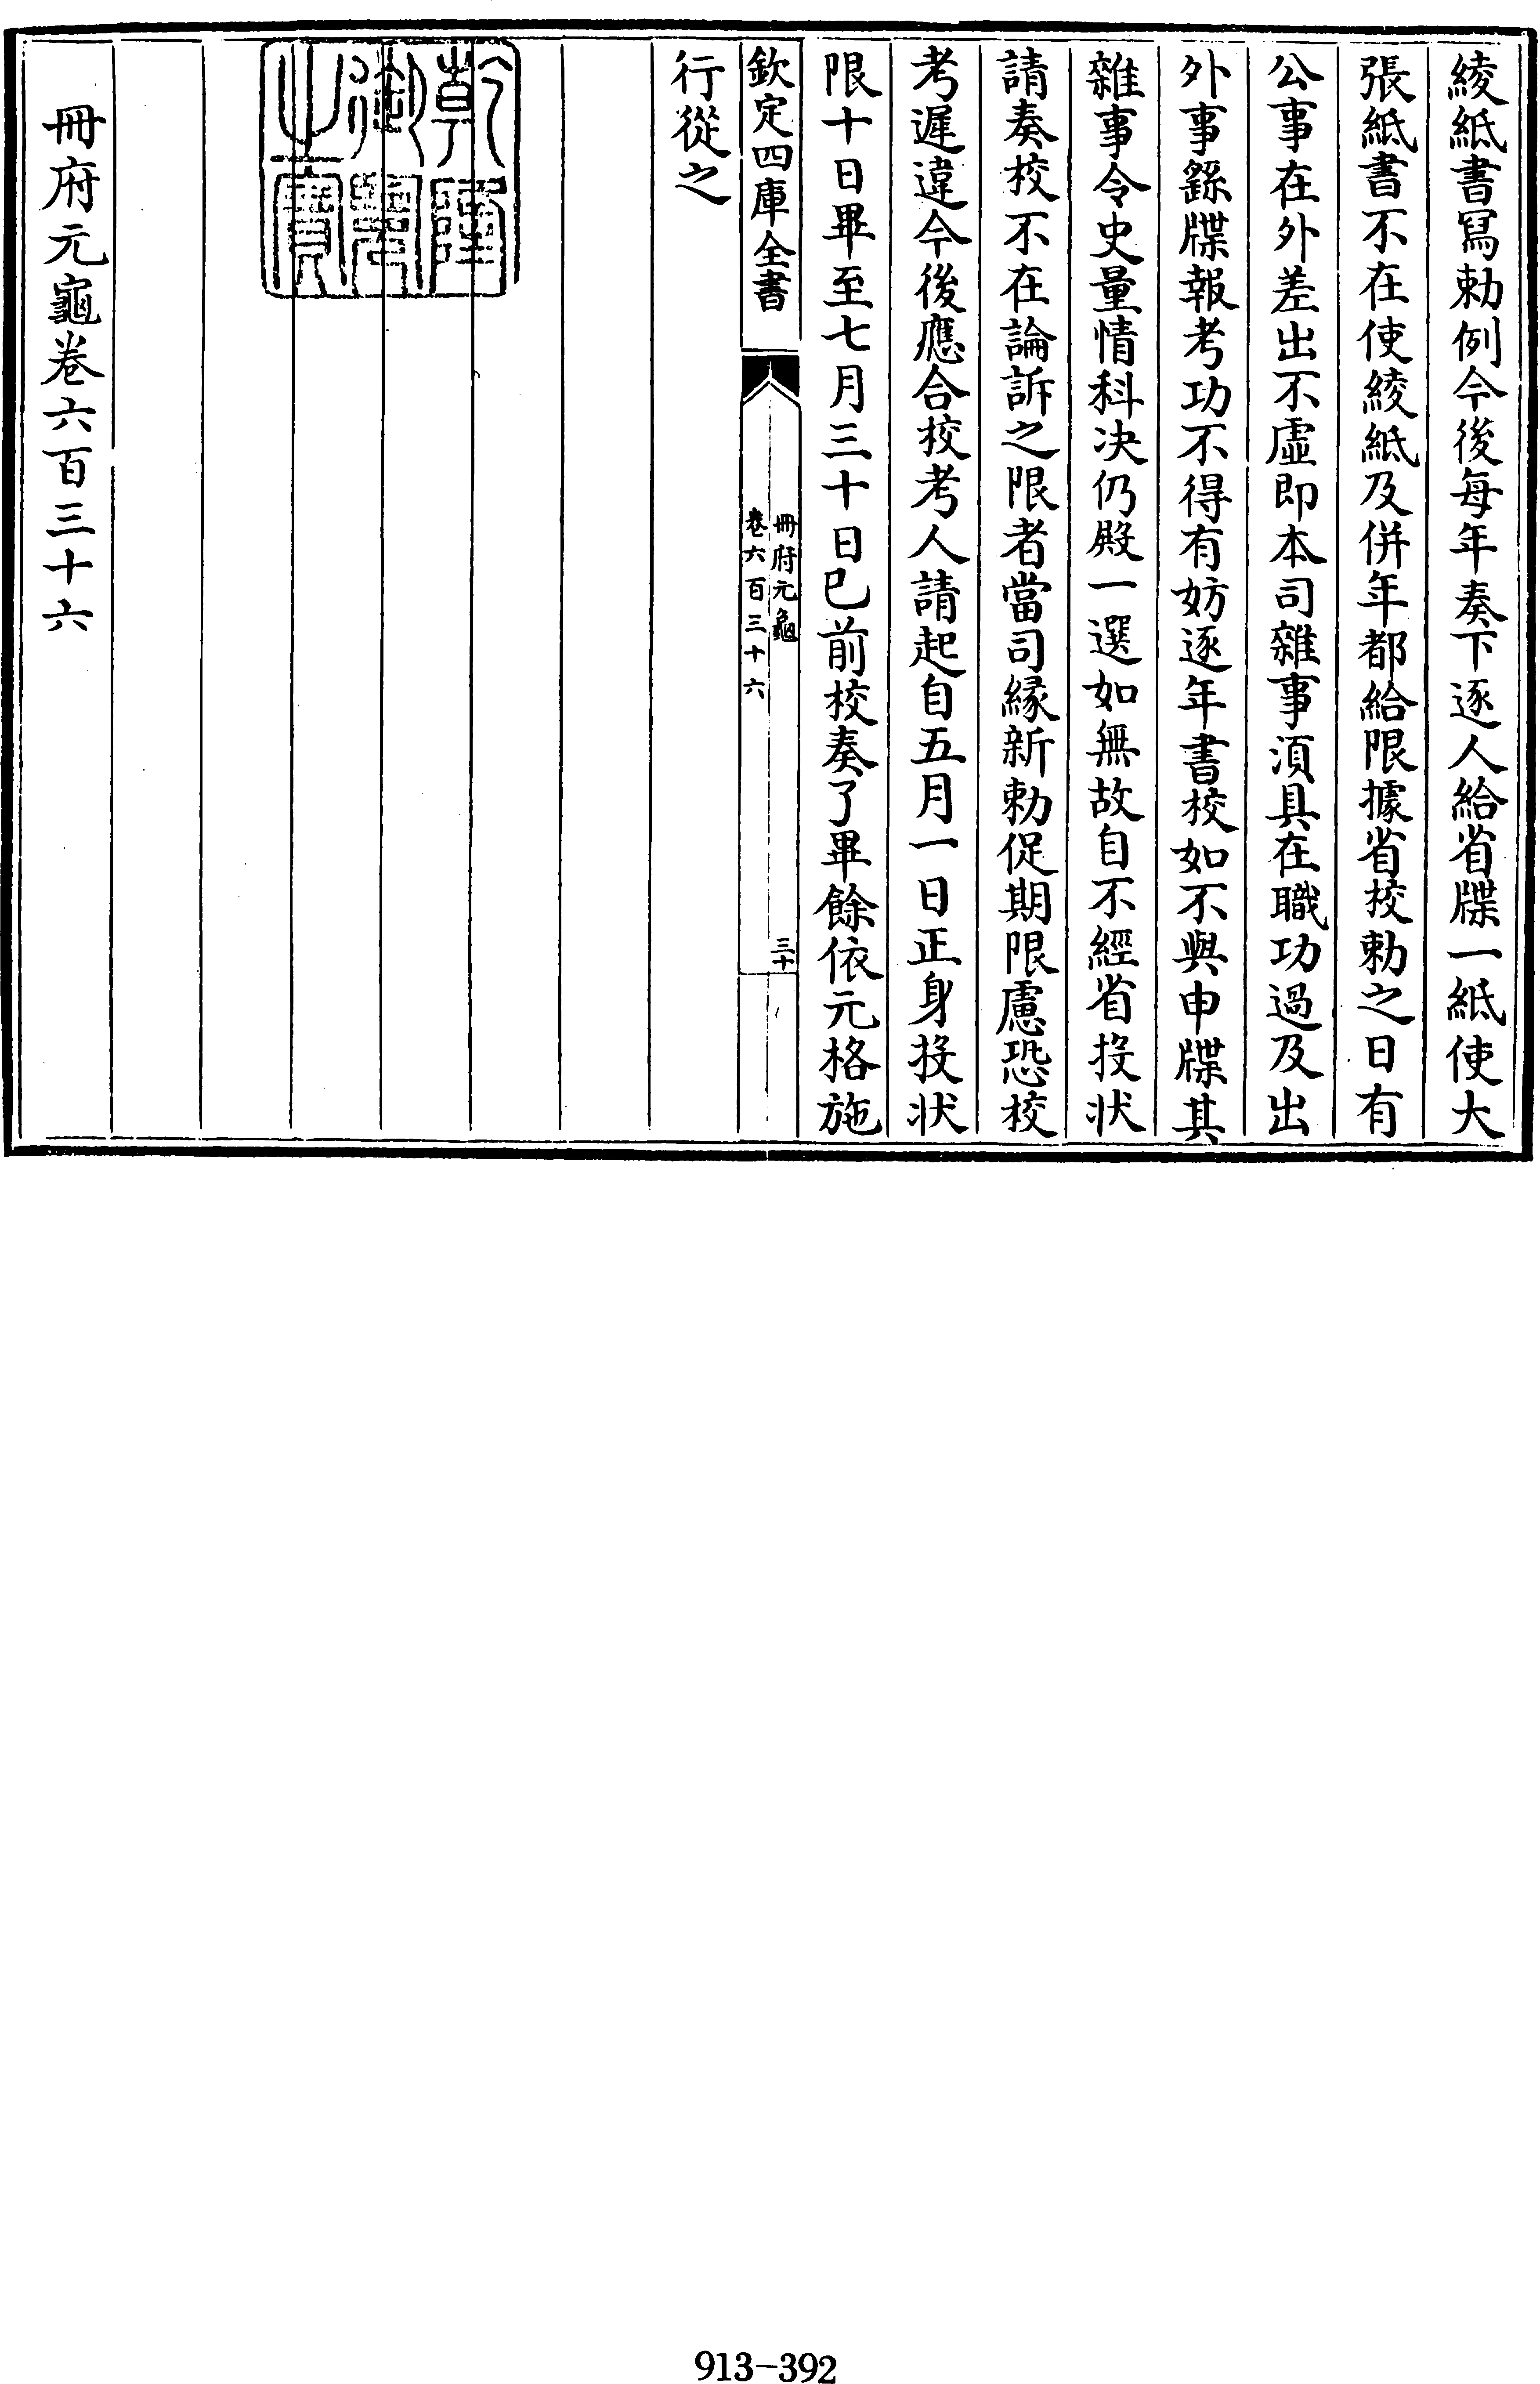 綾紙書冩勅例今後每年奏下逐人給省牒一紙使大
張紙書不在使綾紙及併年都給限據省校勅之日有
公事在外差出不虛即本司雜事湏具在職功過及出
外事繇牒報考功不得有妨逐年書校如不與申牒其
雜事令史量情科決仍殿一選如無故自不經省投狀
請奏校不在論訴之限者當司縁新勅促期限慮恐校
考遲違今後應合校考人請起自五月一日正身投狀
限十日畢至七月三十日已前校奏了畢餘依元格施
欽定四庫全書
冊府元龜
卷六百三十六
三十
行從之
乾隆
御覽
之寶
冊府元龜卷六百三十六
913-392